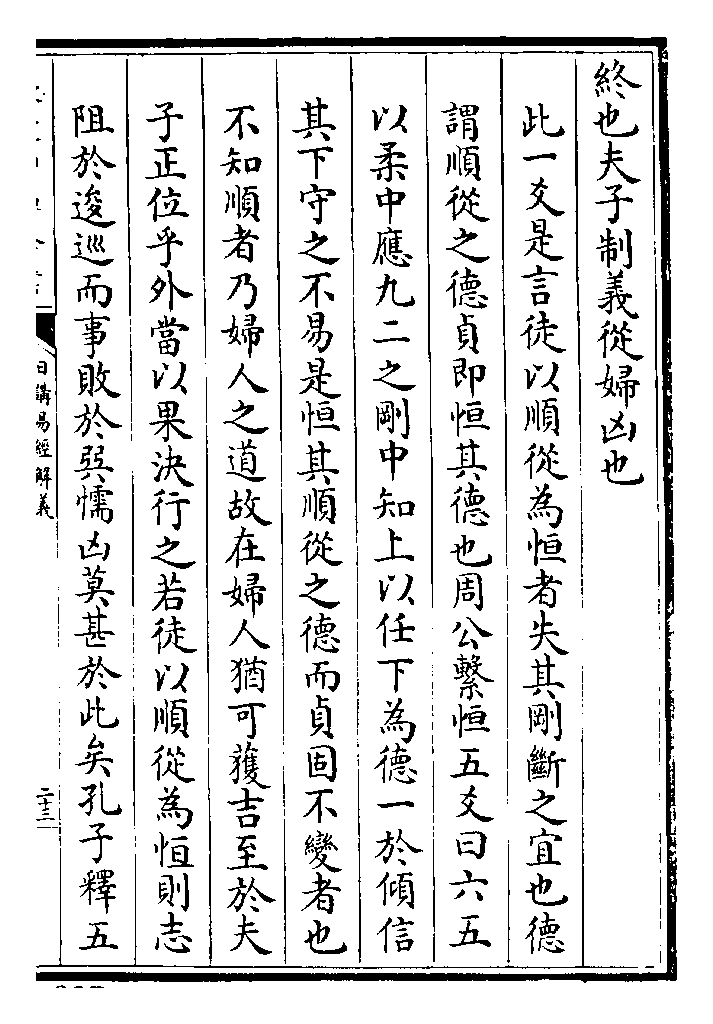 終也夫子制義從婦凶也
此一爻是言徒以順從為恒者失其剛斷之宜也德
謂順從之德貞即恒其德也周公繫恒五爻曰六五
以柔中應九二之剛中知上以任下為德一於傾信
其下守之不易是恒其順從之德而貞固不變者也
不知順者乃婦人之道故在婦人猶可獲吉至於夫
子正位乎外當以果決行之若徒以順從為恒則志
阻於逡巡而事敗於巽懦凶莫甚於此矣孔子釋五
日講易經解義
二十三